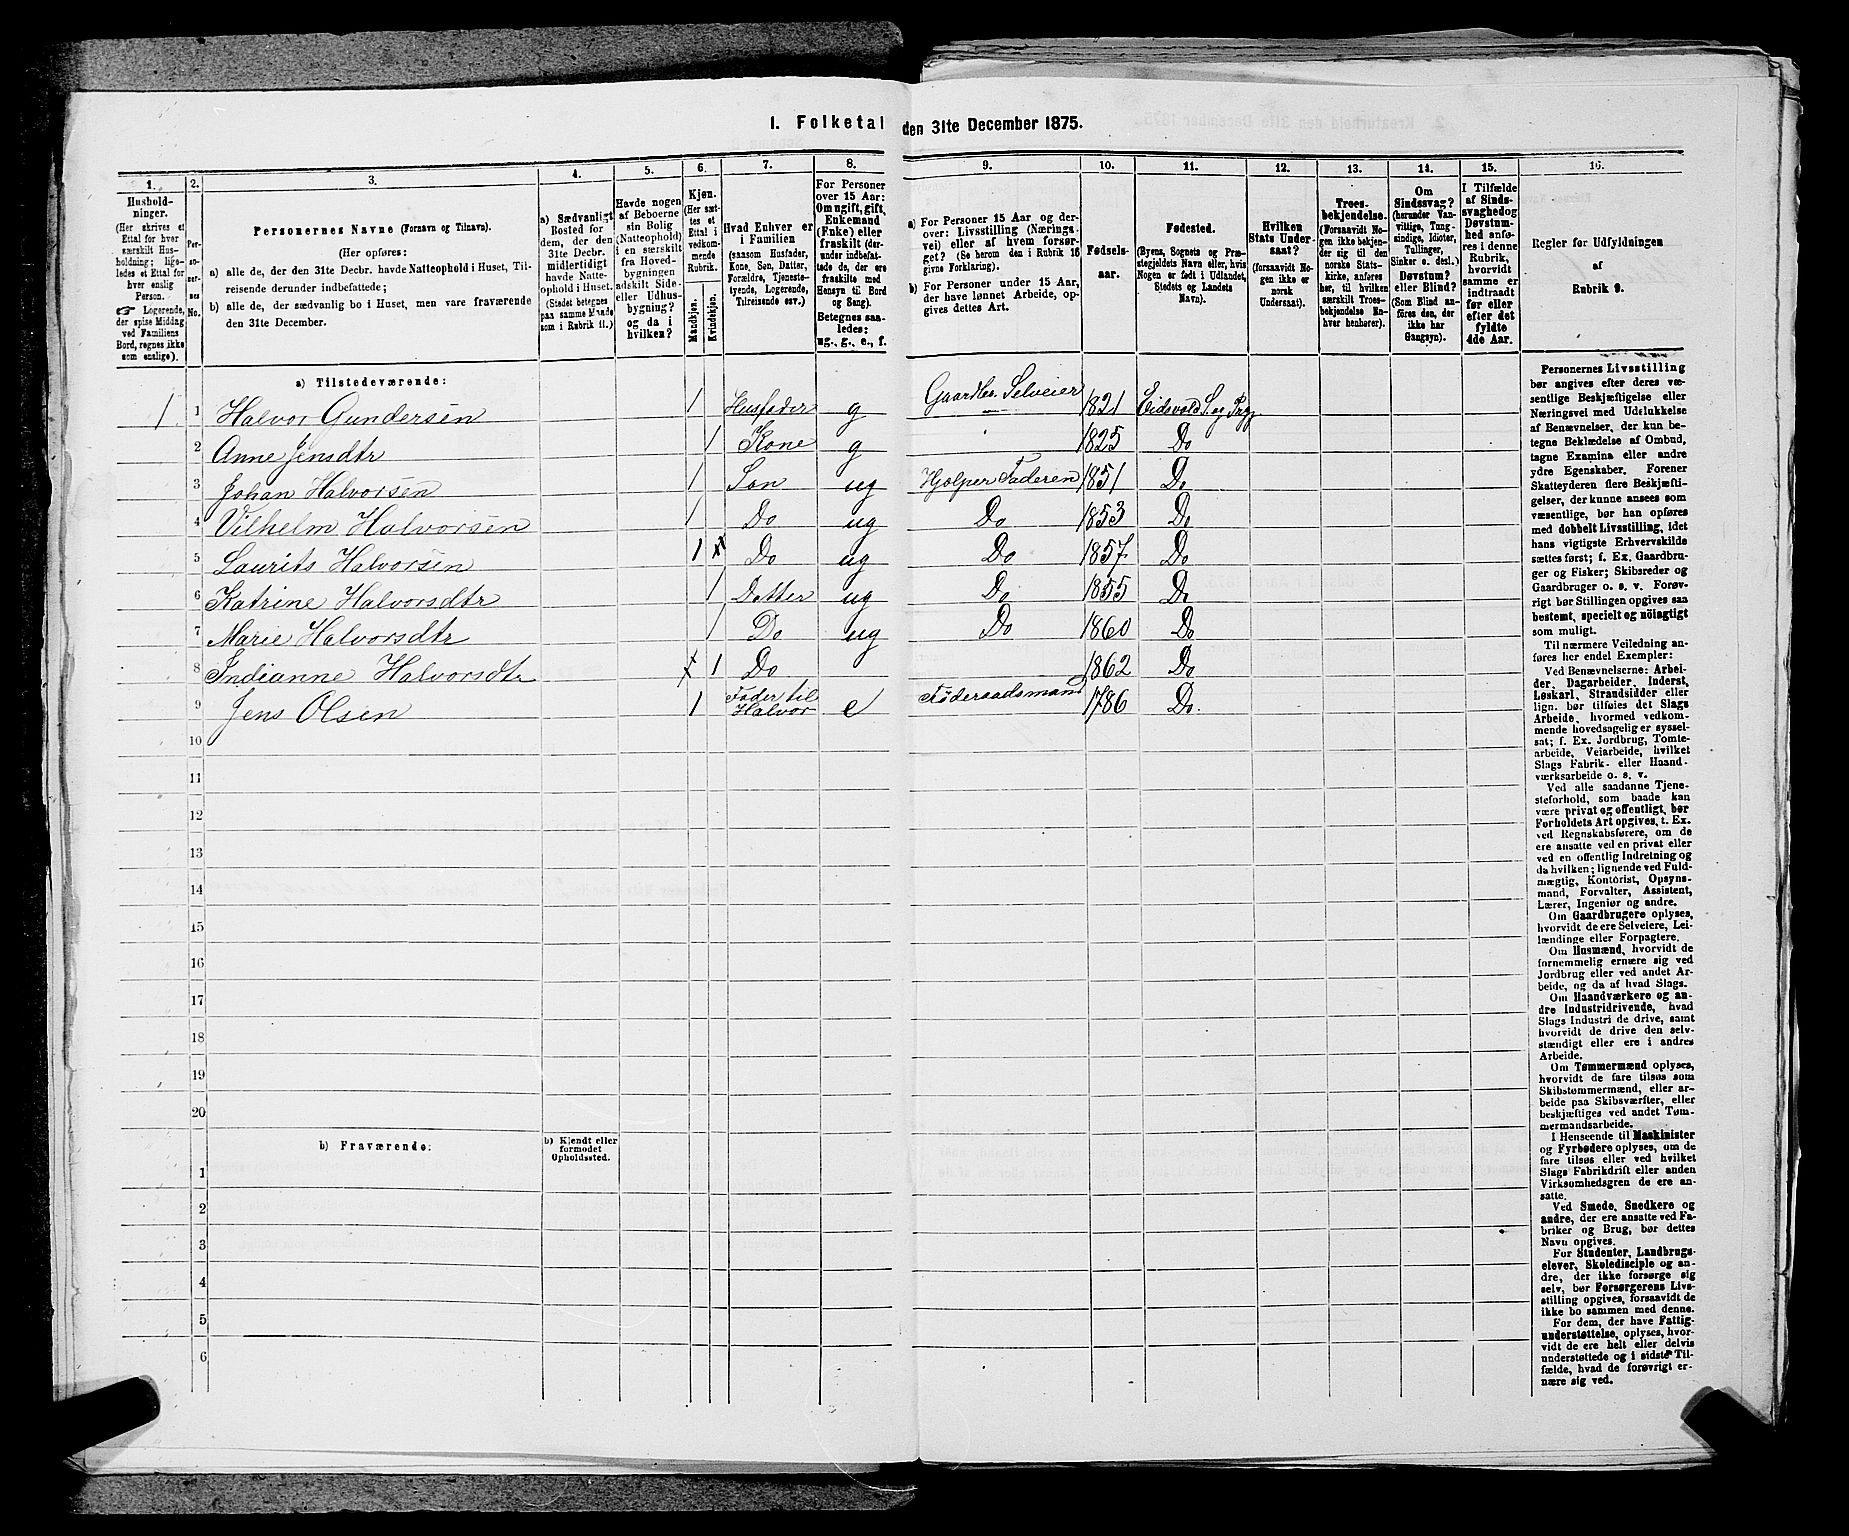 1. Folketal den 31te December 1875.
1.
2.
3.
4.
5.
6.
7.
8.
9.
10.
11.
12.
13.
14.
15.
16.
Hushold-
ninger.
(Her skrives et
Ettal for hver
særskilt Hus-
holdning; lige-
ledes et Ettal for
hver enslig
Person.
☞ Logerende,
der spise Middag
ved Familiens
Bord, regnes ikke
som enslige).
Per-
so-
ner-
nes
No.
Personernes Navne (Fornavn og Tilnavn).
(Her opføres:
a) alle de, der den 31te Decbr. havde Natteophold i Huset, Til-
reisende derunder indbefattede;
b) alle de, der sædvanlig bo i Huset, men vare fraværende
den 31te December.
a) Sædvanligt
Bosted for
dem, der den
31te Decbr.
midlertidigt
havde Natte-
ophold i Huset.
(Stedet betegnes
paa samme Maade
som i Rubrik 11.)
Havde nogen
af Beboerne
sin Bolig
(Natteophold)
i en særskilt
fra Hoved-
bygningen
adskilt Side-
eller Udhus-
bygning?
og da i
hvilken?
Kjøn.
(Her sæt-
tes et
Ettal i
vedkom-
mende
Rubrik.
Mandkjøn.
Kvindekjøn.
Hvad Enhver er
i Familien
(saasom Husfader,
Kone, Søn, Datter,
Forældre, Tjeneste-
tyende, Logerende,
Tilreisende osv.)
For Personer
over 15 Aar:
Om ugift, gift,
Enkemand
(Enke) eller
fraskilt (der-
under indbefat-
tede de, der ere
fraskilte med
Hensyn til Bord
og Seng).
Betegnes saa-
ledes:
ug., g., e., f.
a) For Personer 15 Aar og der-
over: Livsstilling (Nærings-
vei) eller af hvem forsør-
get? (Se herom den i Rubrik 16
givne Forklaring).
b) For Personer under 15 Aar,
der have lønnet Arbeide, op-
gives dettes Art.
Fødsels-
aar.
Fødested.
(Byens, Sognets og Præ-
stegjeldets Navn eller, hvis
Nogen er født i Udlandet,
Stedets og Landets
Navn).
Hvilken
Stats Under-
saat?
(forsaavidt No-
gen ikke er
norsk
Undersaat).
Troes-
bekjendelse.
(Forsaavidt No-
gen ikke bekjen-
der sig til den
norske Stats-
kirke, anføres
her, til hvilken
særskilt Troes-
bekjendelse En-
hver henhører).
Om
Sindssvag?
(herunder Van-
vittige, Tung-
sindige, Idioter,
Tullinger,
Sinker o. desl.)
Døvstum?
eller Blind?
(Som Blind an-
føres den, der
ikke har
Gangsyn).
I Tilfælde
af Sinds-
svaghed og
Døvstum-
hed anfø-
res i denne
Rubrik,
hvorvidt
samme er
indtraadt
før eller
efter det
fyldte
4de Aar.
Regler for Udfyldningen
af
Rubrik 9.
a) Tilstedeværende:
1 1 Halvor Gundersen 1 Husfader g Gaardbr. Selveier 1821 Eidsvold S. og Prgj.
2 Anne Jensdtr 1 Kone g 1825 Do
3 Johan Halvorsen 1 Søn ug Hjælper Faderen 1851 Do
4 Vilhelm Halvorsen 1 Do ug Do 1853 Do
5 Laurits Halvorsen 1 Do ug Do 1857 Do
6 Katrine Halvorsdtr 1 Datter ug Do 1855 Do
7 Marie Halvorsdtr 1 Do ug Do 1860 Do
8 Indianne Halvorsdtr 1 Do 1862 Do
9 Jens Olsen 1 Fader til Halvor e Föderaadsmand 1786 Do.
10
11
12
13
14
15
16
17
18
19
20
b) Fraværende:
b) Kjendt eller
formodet
Opholdssted.
1
2
3
4
5
6
Personernes Livsstilling
bør angives efter deres væ-
sentlige Beskjæftigelse eller
Næringsvei med Udelukkelse
af Benævnelser, der kun be-
tegne Beklædelse af Ombud,
tagne Examina eller andre
ydre Egenskaber. Forener
Skatteyderen flere Beskjæfti-
gelser, der kunne ansees som
væsentlige, bør han opføres
med dobbelt Livsstilling, idet
hans vigtigste Erhvervskilde
sættes først; f. Ex. Gaardbru-
ger og Fisker; Skibsreder og
Gaardbruger o. s. v. Forøv-
rigt bør Stillingen opgives saa
bestemt, specielt og nöiagtigt
som muligt.
Til nærmere Veiledning an-
føres her endel Exempler:
Ved Benævnelserne: Arbei-
der, Dagarbeider, Inderst,
Løskarl, Strandsidder eller
lign. bør tilføies det Slags
Arbeide, hvormed vedkom-
mende hovedsagelig er syssel-
sat; f. Ex. Jordbrug, Tomte-
arbeide, Veiarbeide, hvilket
Slags Fabrik- eller Haand-
værksarbeide o. s. v.
Ved alle saadanne Tjene-
steforhold, som baade kan
være privat og offentligt, bør
Forholdets Art opgives, t. Ex.
ved Regnskabsførere, om de
ere ansatte ved en privat eller
ved en offentlig Indretning og
da hvilken; lignende ved Fuld-
mægtig, Kontorist, Opsyns-
mand, Forvalter, Assistent,
Lærer, Ingeniør og andre.
Om Gaardbrugere oplyses,
hvorvidt de ere Selveiere, Lei-
lændinge eller Forpagtere.
Om Husmænd, hvorvidt de
fornemmelig ernære sig ved
Jordbrug eller ved andet Ar-
beide, og da af hvad Slags.
Om Haandværkere og an-
dre Industridrivende, hvad
Slags Industri de drive, samt
hvorvidt de drive den selv-
stændigt eller ere i andres
Arbeide.
Om Tømmermænd oplyses,
hvorvidt de fare tilsøs som
Skibstømmermænd, eller ar-
beide paa Skibsværfter, eller
beskjæftiges ved andet Tøm-
mermandsarbeide.
I Henseende til Maskinister
og Fyrbødere oplyses, om de
fare tilsøs eller ved hvilket
Slags Fabrikdrift eller anden
Virksomhedsgren de ere an-
satte.
Ved Smede, Snedkere og
andre, der ere ansatte ved Fa-
briker og Brug, bør dettes
Navn opgives.
For Studenter, Landbrugs-
elever, Skoledisciple og an-
dre, der ikke forsørge sig
selv, bør Forsørgerens Livs-
stilling opgives, forsaavidt de
ikke bo sammen med denne.
For dem, der have Fattig-
understøttelse, oplyses, hvor-
vidt de ere helt eller delvis
understøttede og i sidste Til-
fælde, hvad de forøvrigt er-
nære sig ved.